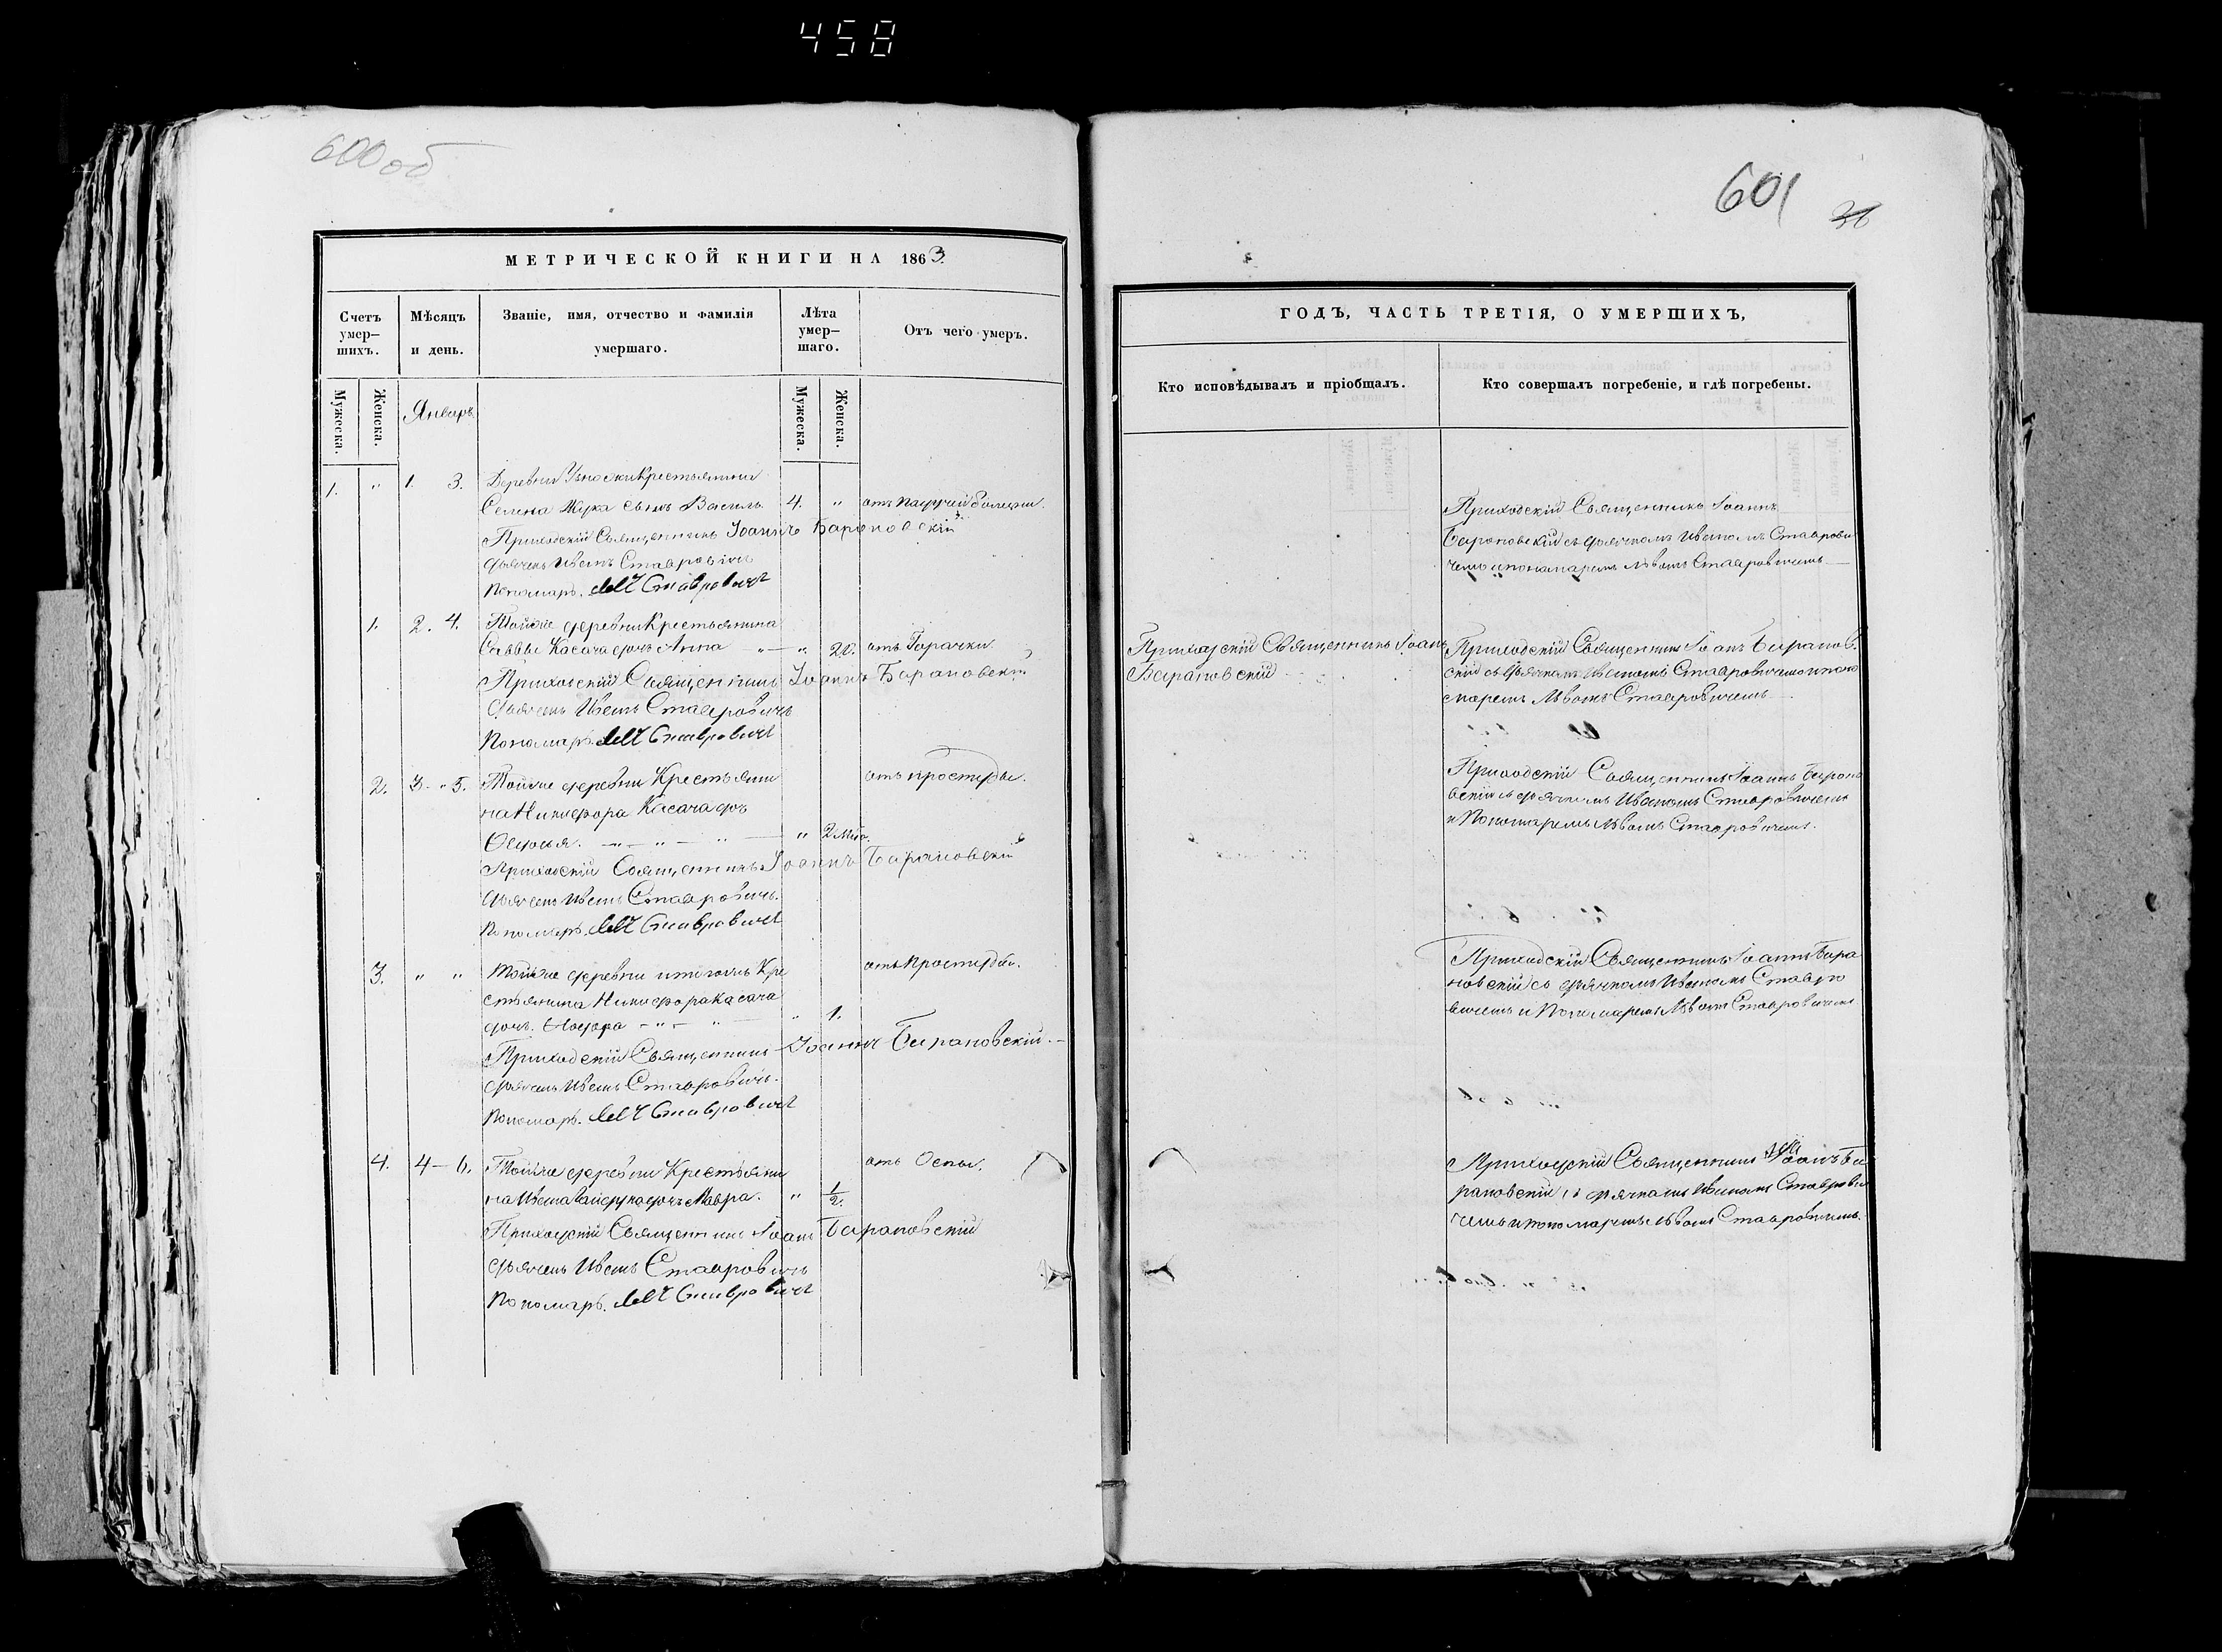 458
600 об
МЕТРИЧЕСКОЙ КНИГИ НА 1863.
Счетъ умер-шихъ.
Мѣсяцъ и день.
Званіе, имя, отчество и фамилія умершаго.
Лѣта умер-шаго.
Отъ чего умеръ.
Мужеска.
Женска.
Январь
Мужеска.
Женска.
1. " 1. 3. Деревни Крестьянина
Жука сынъ Василь 4. " отъ
Приходскій Священникъ Іоаннъ Барановскій
дьячекъ Иванъ Ставровичъ
Пономарь Левъ Ставровичъ
1. 2. 4. Тойже деревни Крестьянина
Саввы Касача дочь Анна " 20. отъ Горячки
Приходскій Священникъ Іоаннъ Барановскій
дьячекъ Иванъ Ставровичъ
Пономарь Левъ Ставровичъ
2. 3. 5. Тойже деревни Крестьяни отъ простуды.
на Никифора Касача доч
" 2 мѣс.
Приходскій Священникъ Іоаннъ Барановскій
дьячекъ Иванъ Ставровичъ.
Пономарь. Левъ Ставровичъ
3. " " Тойже деревни и тогожъ Кре отъ Простуды.
стьянина Никифора Касача
дочь. " 1.
Приходскій Священникъ Іоаннъ Барановскій.
дьячекъ Иванъ Ставровичъ.
Пономарь. Левъ Ставровичъ
4. 4 – 6. Тойже деревни Крестьяни отъ Оспы.
на Ивана дочь Мавра. " 1/2.
Приходскій Священникъ Іоанъ Барановскій
дьячекъ Иванъ Ставровичъ
Пономарь. Левъ Ставровичъ
601
36
ГОДЪ, ЧАСТЬ ТРЕТІЯ, О УМЕРШИХЪ,
Кто исповѣдывалъ и пріобщалъ.
Кто совершалъ погребеніе, и гдѣ погребены.
Приходскій Священникъ Іоаннъ
Барановскій съ дьячкомъ Иваномъ Ставрови
чемъ и пономаремъ Львомъ Ставровичемъ
Приходскій Священникъ Іоанъ
Барановскій
Приходскій Священникъ Іоанъ Баранов
скій съ дьячкомъ Иваномъ Ставровичемъ и поно
маремъ Львомъ Ставровичемъ.
Приходскій Священникъ Іоаннъ Барано
вскій съ дьячкомъ Иваномъ Ставровичемъ
и Пономаремъ Львомъ Ставровичемъ.
Приходскій Священникъ Іоаннъ Бара
новскій съ дьячкомъ Иваномъ Ставро
вичемъ и Пономаремъ Львомъ Ставровичемъ
Приходскій Священникъ Іоанъ Ба
рановскій съ дьячкомъ Иваномъ Ставрови
чемъ и пономаремъ Львомъ Ставровичемъ.